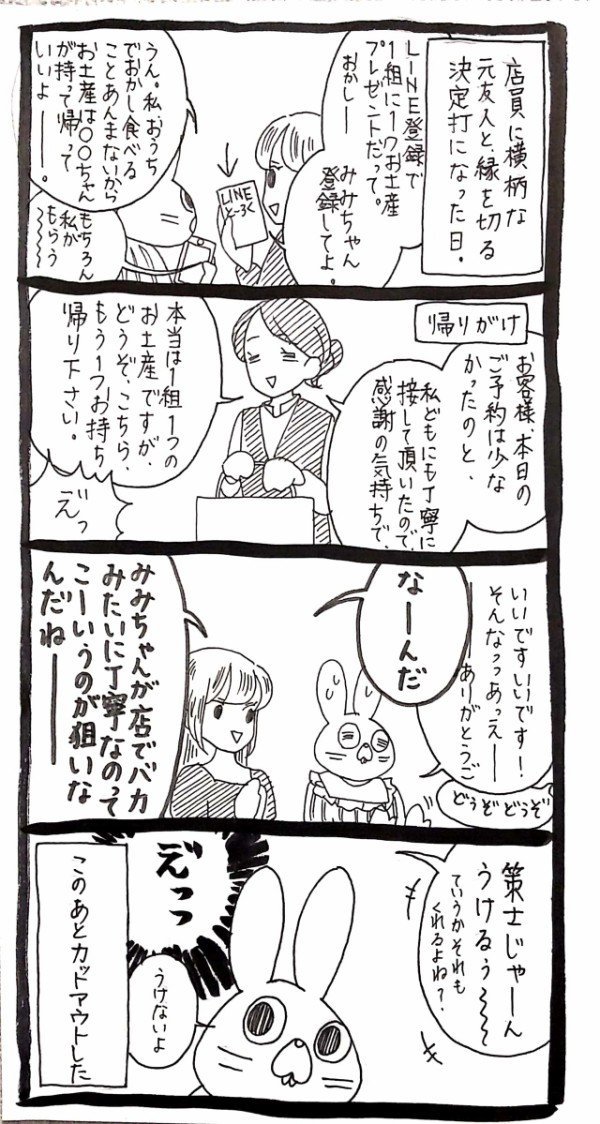 店員に横柄な
元友人と、縁を切る
決定打になった日。
LINE登録で
1組に1つお土産
プレゼントだって。
おかしー
みみちゃん
登録してよ。
LINE
とーろく
うん。私、おうち
でおかし食べる
ことあんまないから
お土産は〇〇ちゃん
が持って帰って
いいよー。
もちろん
私が
もらう
〜〜〜
帰りがけ
お客様、本日の
ご予約は少な
かったのと、
私どもにも丁寧に
接して頂いたので、
感謝の気持ちで、
本当は1組1つの
お土産ですが、
どうぞ、こちら、
もう1つお持ち
帰り下さい。
えっ
いいですいいです!
そんなっあっえーー
ーーありがとうご
どうぞどうぞ
なーんだ
みみちゃんが店でバカ
みたいに丁寧なのって
こーいうのが狙いな
んだねーー
策士じゃーん
うけるぅ〜〜〜
ていうかそれも
くれるよね?
えっっ
うけないよ
このあとカッドアウトした